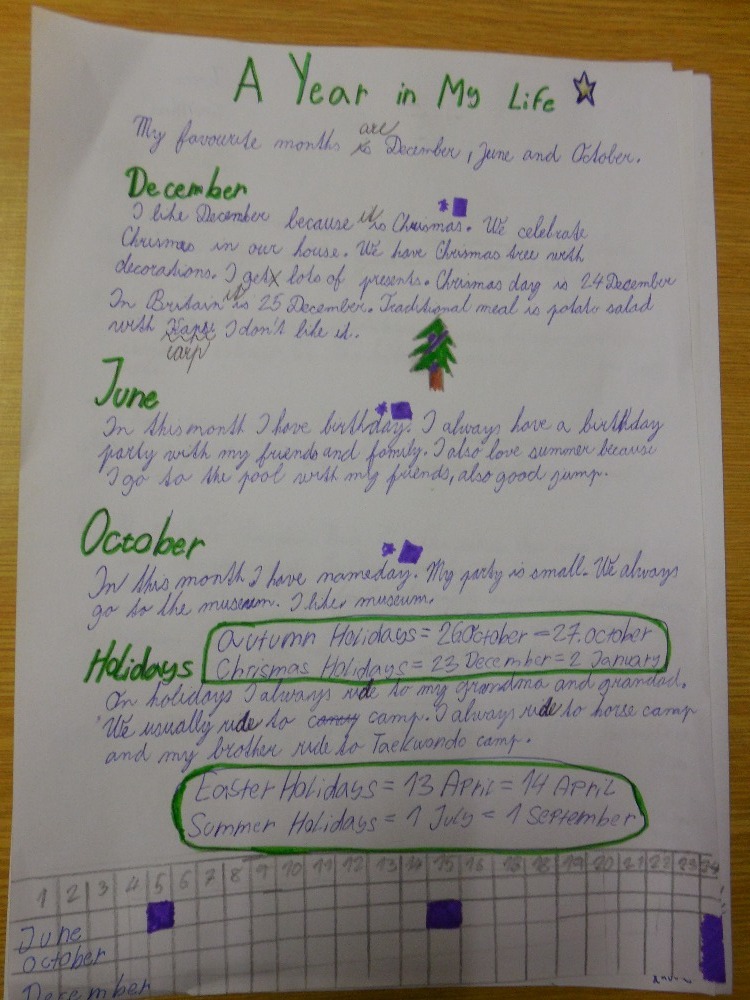 A Year in My Life
are
My favourite months is December, June and October.
December
I like December because it is Chrismas. We celebrate
Chrismas in our house. We have Chrismas tree with
decorations. I get lots of presents. Chrismas day is 24 December
In Britain it is 25 December. Traditional meal is potato salad
with Kapr I don't like it.
carp
June
In this month I have birthday. I always have a birthday
party with my friends and family. I also love summer because
I go to the pool with my friends, also good jump.
October
In this month I have nameday. My party is small. We always
go to the museum. I like museum.
Autumn Holidays = 26 October = 27. october
Chrismas Holidays = 23 December = 2 January
Holidays
On holidays I always ride to my grandma and grandad.
We usually ride to camp. I always ride to horse camp
and my brother ride to Taekwondo camp.
Easter Holidays = 13 April = 14 April
Summer Holidays = 1 July = 1 September
1 2 3 4 5 6 7 8 9 10 11 12 13 14 15 16 18 18 19 20 21 22 23 24
June
October
December